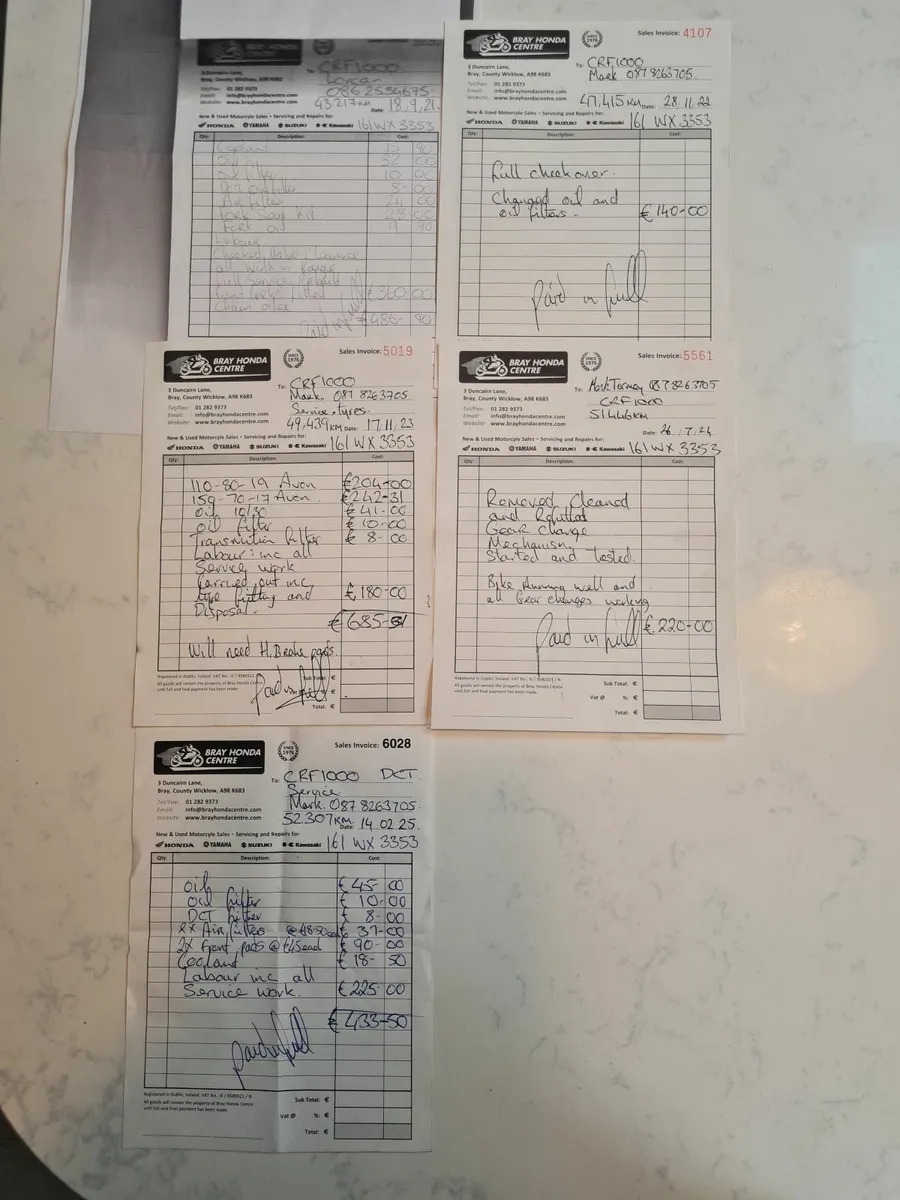 BRAY HONDA
CENTRE
SINCE 1976
3 Duncairn Lane,
Bray, County Wicklow, A98 K683
Tel/Fax: 01 282 9373
Email: info@brayhondacentre.com
Website: www.brayhondacentre.com
CRF1000
086 2534675
43217KM Date: 18.9.21.
New & Used Motorcyle Sales • Servicing and Repairs for:
HONDA YAMAHA SUZUKI Kawasaki 161 WX 3353
Qty: Description: Cost:
Coolant 15 90
Oil 32 00
Oil filter 10 00
DCT oil filter 8-00
Air filter 24 00
Fork Seal Kit 28-00
Fork oil 9 90
Labour
Checked Valve Clearance
all within Range
full Service
front forks fitted €360 00
Chain oiler
€486- 90
BRAY HONDA
CENTRE
SINCE 1976
Sales Invoice: 4107
3 Duncairn Lane,
Bray, County Wicklow, A98 K683
Tel/Fax: 01 282 9373
Email: info@brayhondacentre.com
Website: www.brayhondacentre.com
To: CRF1000
Mark 087 8263705.
47,415KM Date: 28.11.22
New & Used Motorcyle Sales • Servicing and Repairs for:
HONDA YAMAHA SUZUKI Kawasaki 161 WX 3353
Qty: Description: Cost:
Full checkover.
Changed oil and
oil filters - €140-00
Paid in full
BRAY HONDA
CENTRE
SINCE 1976
Sales Invoice: 5019
3 Duncairn Lane,
Bray, County Wicklow, A98 K683
Tel/Fax: 01 282 9373
Email: info@brayhondacentre.com
Website: www.brayhondacentre.com
To: CRF1000
Mark. 087 8263705
Service, tyres.
49,439KM Date: 17.11.23
New & Used Motorcyle Sales • Servicing and Repairs for:
HONDA YAMAHA SUZUKI Kawasaki 161 WX 3353
Qty: Description: Cost:
110-80-19 Avon €204-00
150-70-17 Avon. €242-31
Oil 10/30 € 41-00
Oil filter € 10-00
Transmition filter € 8-00
Labour: inc all
Service work
Carried out inc
tyre fitting and € 180-00
Disposal.
€685-31
Will need H.Brake pads.
Registered in Dublin, Ireland. VAT No.: IE / 3580521 / R
All goods will remain the property of Bray Honda Centre
until full and final payment has been made
Sub Total: €
Paid in full
Total: €
BRAY HONDA
CENTRE
SINCE 1976
Sales Invoice: 5561
3 Duncairn Lane,
Bray, County Wicklow, A98 K683
Tel/Fax: 01 282 9373
Email: info@brayhondacentre.com
Website: www.brayhondacentre.com
To: Mark Tormey 087 8263705
CRF1000
51446KM
Date: 26.7.24
New & Used Motorcyle Sales • Servicing and Repairs for:
HONDA YAMAHA SUZUKI Kawasaki 161 WX 3353
Qty: Description: Cost:
Removed Cleaned
and Refitted
Gear Change
Mechanism.
Started and Tested.
Bike Running well and
all Gear changes working
€220-00
Paid in full
Registered in Dublin, Ireland. VAT No.: IE / 3580521 / R
All goods will remain the property of Bray Honda Centre
until full and final payment has been made
Sub Total: €
Vat @ %: €
Total: €
BRAY HONDA
CENTRE
SINCE 1976
Sales Invoice: 6028
3 Duncairn Lane,
Bray, County Wicklow, A98 K683
Tel/Fax: 01 282 9373
Email: info@brayhondacentre.com
Website: www.brayhondacentre.com
To: CRF1000 DCT.
Service
Mark. 087 8263705.
52307KM. Date: 14 02 25.
New & Used Motorcyle Sales • Servicing and Repairs for:
HONDA YAMAHA SUZUKI Kawasaki 161 WX 3353
Qty: Description: Cost:
Oil € 45-00
Oil filter € 10-00
DCT filter € 8-00
2X Air filters @ €18.50 each € 37-00
2X front pads @ €45 each € 90-00
Coolant €18- 50
Labour inc all
Service work. €225-00
€433-50
paid in full
Registered in Dublin, Ireland. VAT No.: IE / 3580521 / R
All goods will remain the property of Bray Honda Centre
until full and final payment has been made
Sub Total: €
Vat @ %: €
Total: €